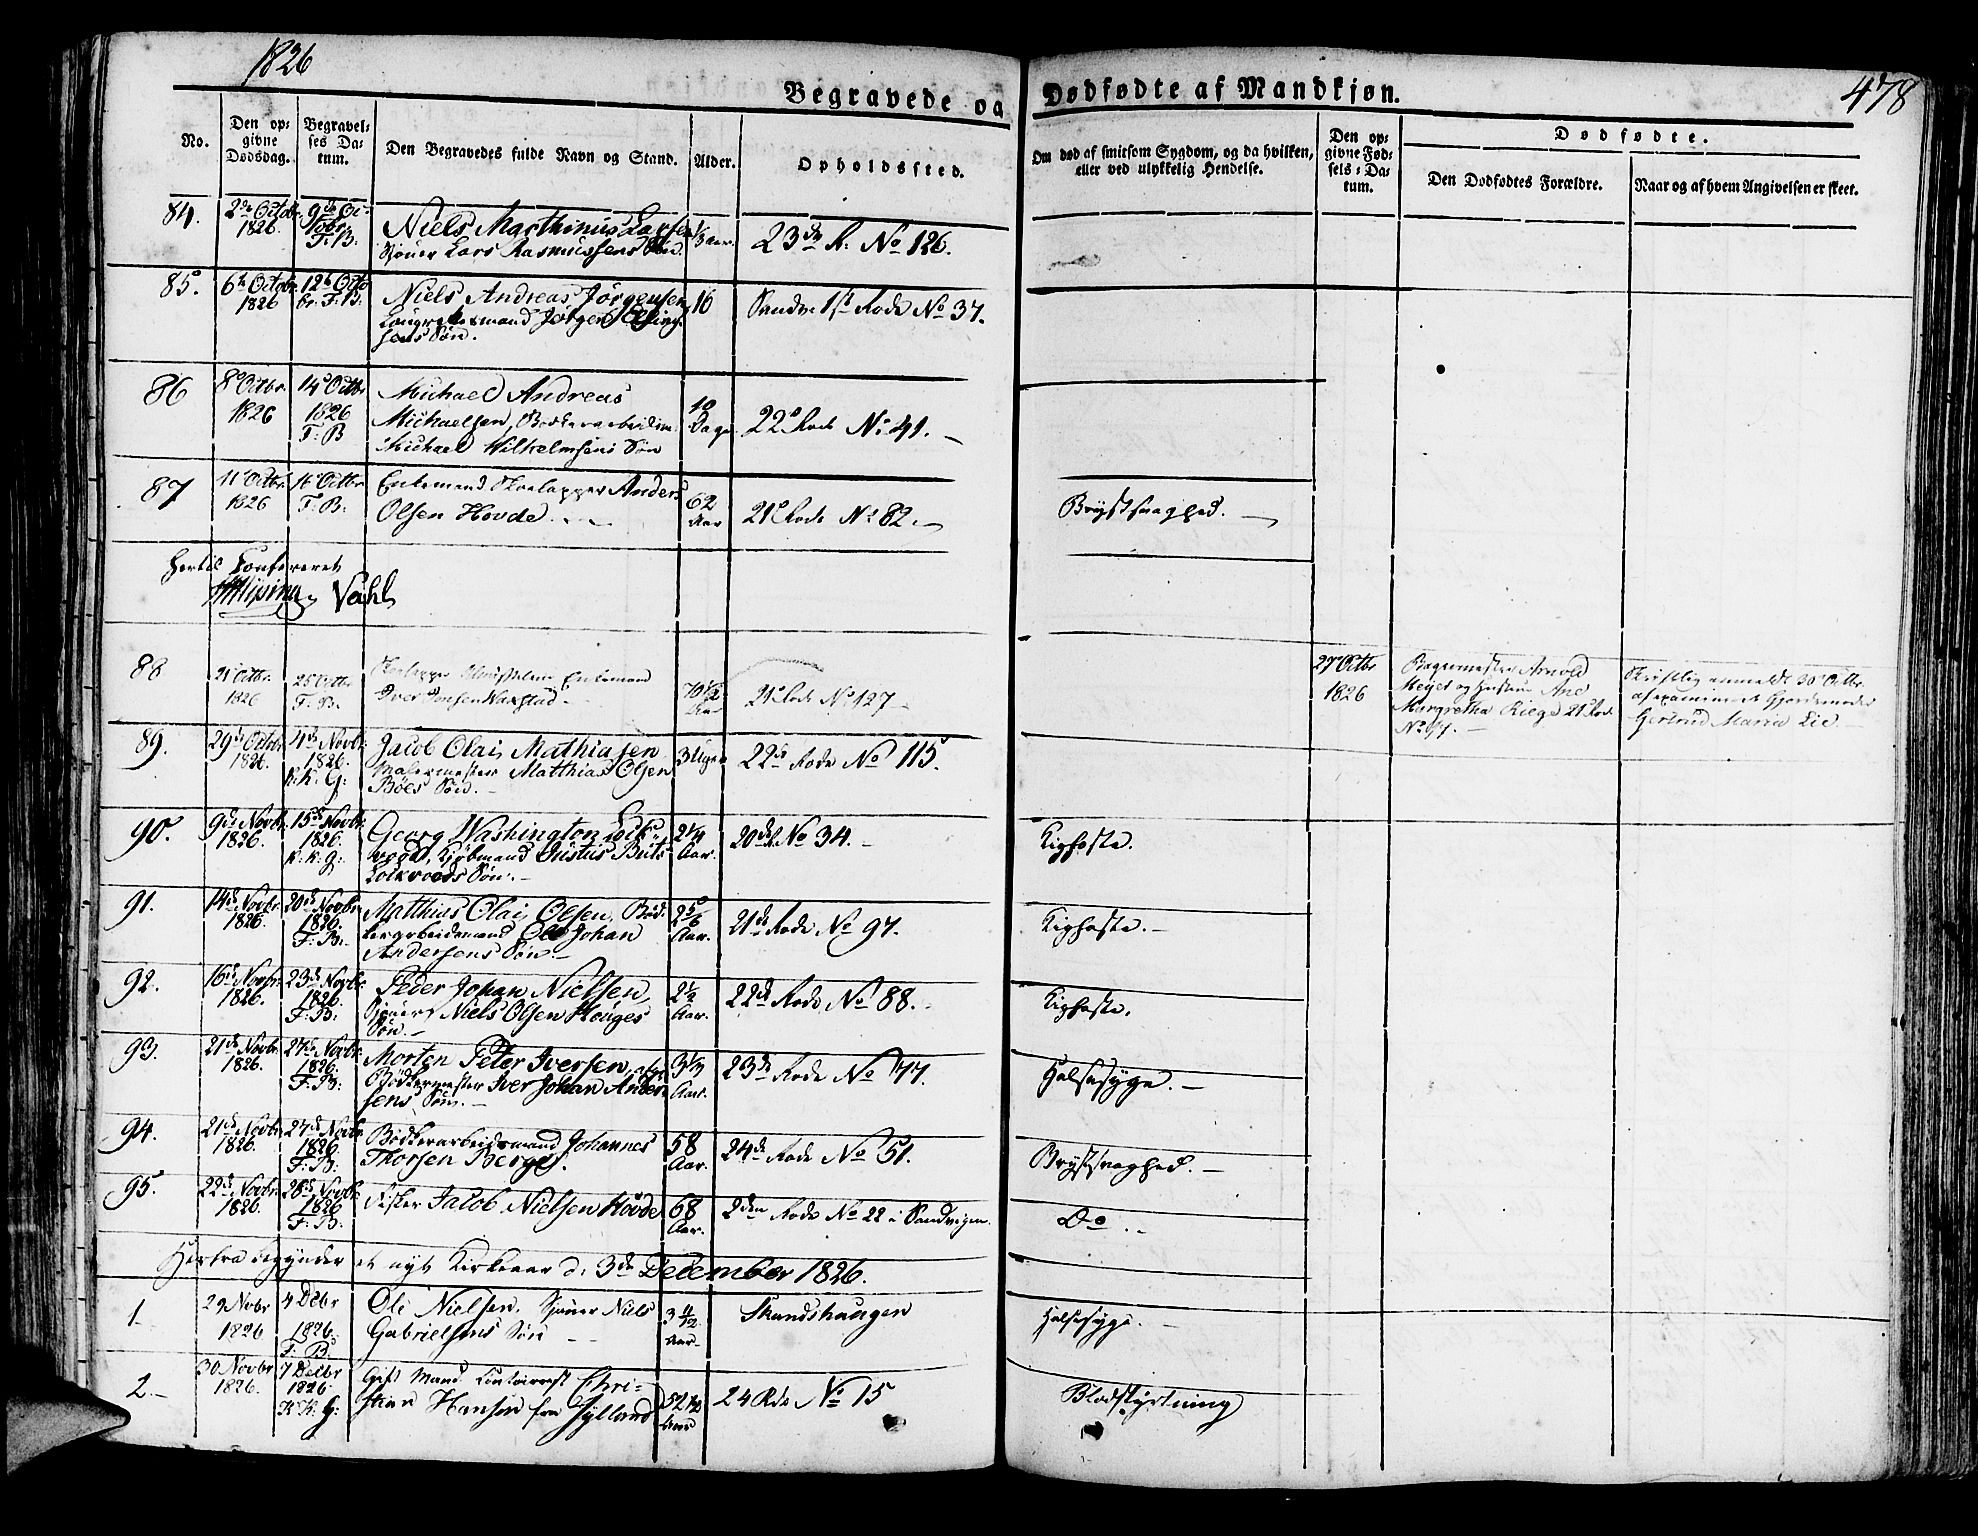 1826
478
Begravede og Dødfødte af Mandkjøn.
No.
Den opgivne Dødsdag.
Begravelses Datum.
Den Begravedes fulde Navn og Stand.
Alder.
Opholdssted.
Om død af smitsom Sygdom, og da hvilken, eller ved ulykkelig Hendelse.
Den opgivne Fødsels-Datum.
Dødfødte.
Den Dødfødtes Forældre.
Naar og af hvem Angivelsen er skeet.
84. 2de Octobr. 1826. 9de October F: B. Niels Marthinus Larsen
Sjouer Lars Rasmussens Søn. 1/3 aar. 23de R. No 126.
85. 6te Octobr. 1826 12te Octobr. F: B. Niels Andreas Jörgensen
Jörgen
sens Søn. 16 Sandv. 1ste Rode No 37.
86 8de Octbr. 1826 14de Octbr 1826 F: B Michael Andreas
Michaelsen, Bødkerarbeidsm.
Michael Wilhelmsens Søn 10 Dage 22de Rode No 41.
87 11te Octbr. 1826 16 Octbr. F: B: Enkemand Skoelapper Anders
Olsen Hovde. 62 Aar 21de Rode No 82. Brystsvaghed.
Hertil Confereret
Vahl
88 21 Octbr. 1826 25 Octbr. F: B. Skolapper Enkemand
Iver Jensen 70 1/2 Aar 21de Rode No 127
27 Octbr 1826
Bagermester Arnold
Meyer og Hustru Ane
Margretha Riege 21 Rode
No 97.
Skriftlig anmeldt 30 Octbr.
af examineret Gjordemoder
Gertrud Maria Lie
89. 29de Octobr 1826. 4de Novbr: 1826. K: K. G: Jacob Olai Mathiasen
Malermester Matthias Olsen
Böes Søn. 3 Uger 22de Rode No 115.
90. 9de Novbr. 1826. 15de Novbr: 1826. K: K: G: Georg Washington Lock-
wood, Kjøbmand Justus Buts
Lockwoods Søn. 2 1/4 Aar. 20de R. No 34. Kighoste.
91. 14de Novbr 1826. 20de Novbr. 1826. F: B: Matthias Olai Olsen, Bød-
kerarbeidsmand Ole Johan
Andersens Søn. 2 5/6 Aar. 21de Rode No 97. Kighoste.
92. 16de Novbr: 1826. 23de Novbr: 1826. F: B: Peder Johan Nielsen,
Sjouer Niels Olsen Houges
Søn. 2 1/2 Aar. 22de Rode No 88. Kighoste.
93. 21de Novbr. 1826. 27de Novbr. 1826. F: B: Morten Peter Iversen,
Bødkermester Iver Johan Ander-
sens Søn. 3 1/3 Aar. 23de Rode No 77. Halssyge.
94. 21de Novbr 1826. 27de Novbr. 1826. F: B: Bødkerarbeidsmand Johannes
Thorsen Berge. 58 Aar. 24de Rode No 51. Brystsvaghed.
95. 22de Novbr. 1826. 28de Novbr. 1826 F: B: Fisker Jacob Nielsen Hövde 68 Aar. 2den Rode No 22 i Sandvigen. Do
Herfra begynder et nyt Kirkeaar d. 3de December 1826.
1 29 Novbr 1826 4 Debr 1826. F: B. Ole Nielsen, Sjouer Niels
Gabrielsens Søn 3 4/12 Aar Skandshaugen Halssyge.
2. 30 Novbr 1826. 7 Decbr 1826. K K. G: Gift Mand Chri-
stian Hansen fra Jylland 52 1/2 Aar 24 Rode No 15 Blodstyrtning